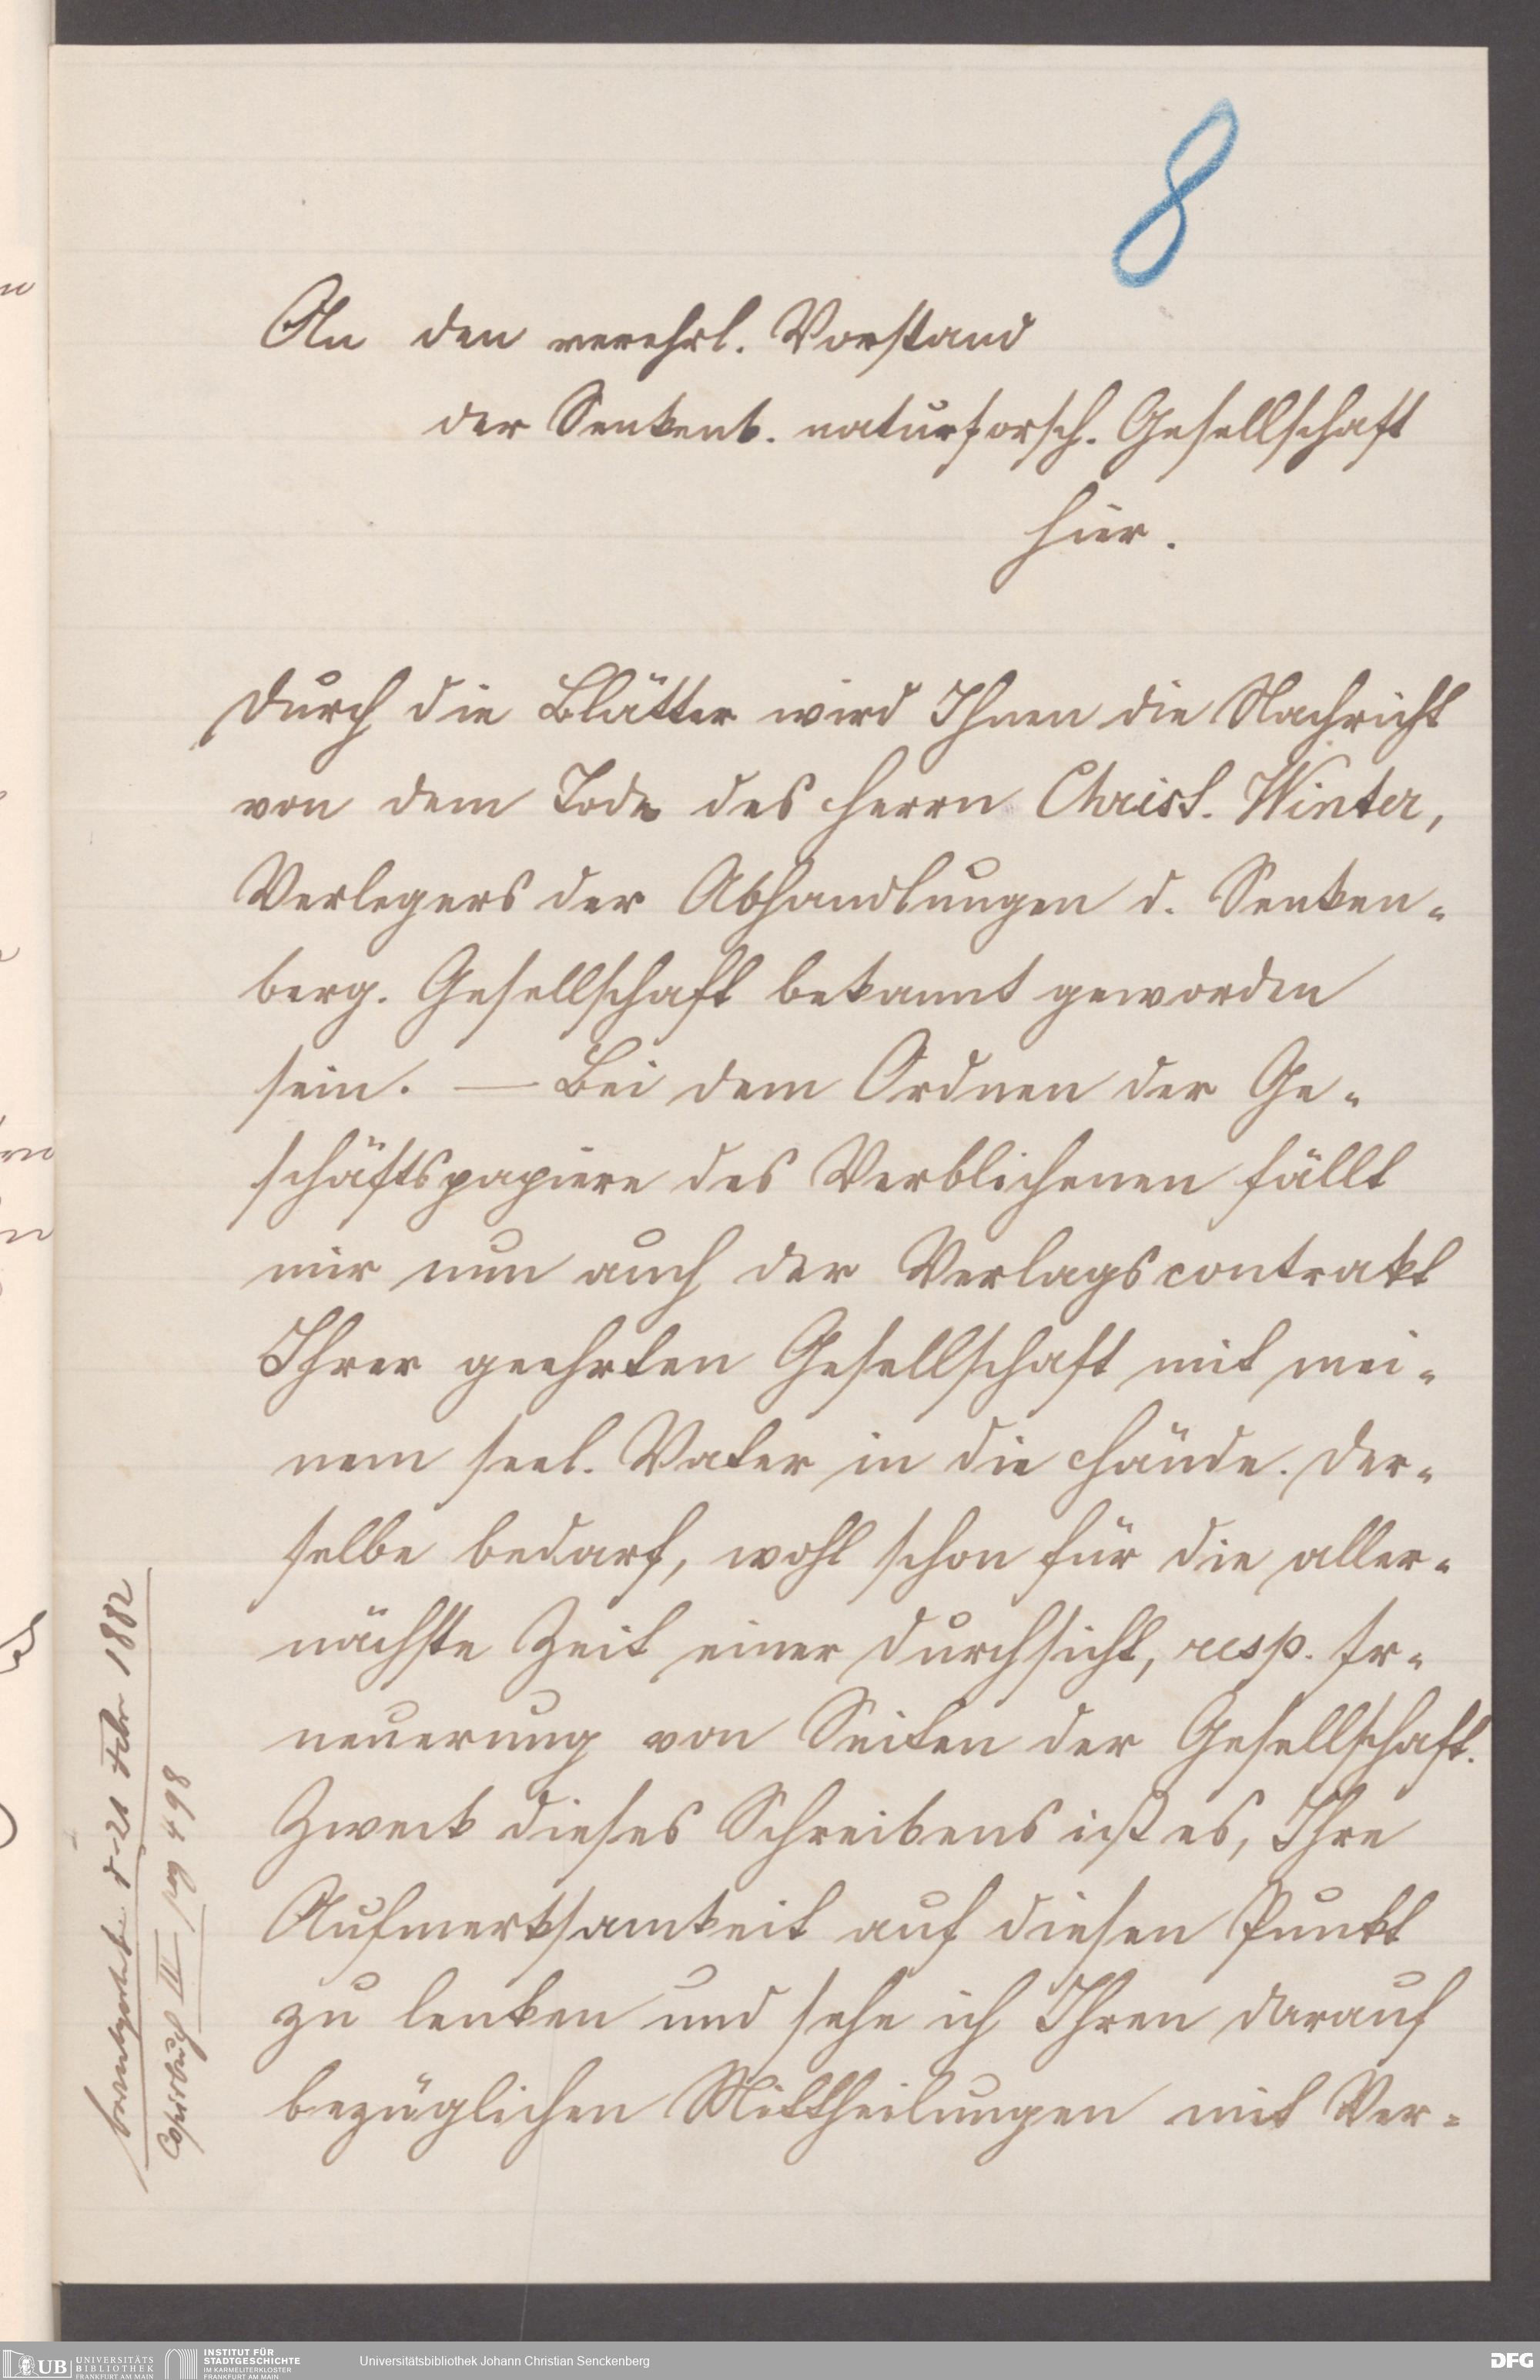 8
An den verehrl. Vorstand
der Senkenb. naturforsch. Gesellschaft
hier.
Durch die Blätter wird Ihnen die Nachricht
von dem Tode des Herrn Christ. Winter,
Verlegers der Abhandlungen d. Senken-
berg. Gesellschaft bekannt geworden
sein. — Bei dem Ordnen der Ge-
schäftspapiere des Verblichenen fällt
mir nun auch der Verlagscontrakt
Ihrer geehrten Gesellschaft mit mei-
nem seel. Vater in die Hände. Der-
selbe bedarf, wohl schon für die aller-
nächste Zeit einer Durchsicht, resp. Er-
neuerung von Seiten der Gesellschaft.
Zweck dieses Schreibens ist es, Ihre
Aufmerksamkeit auf diesen Punkt
zu lenken und sehe ich Ihren darauf
bezüglichen Mittheilungen mit Ver-
beantwortet d 21 Febr 1882
Copirbuch III pag 498
UB UNIVERSITÄTS
BIBLIOTHEK
FRANKFURT AM MAIN
INSTITUT FÜR
STADTGESCHICHTE
IM KARMELITERKLOSTER
FRANKFURT AM MAIN
Universitätsbibliothek Johann Christian Senckenberg
DFG